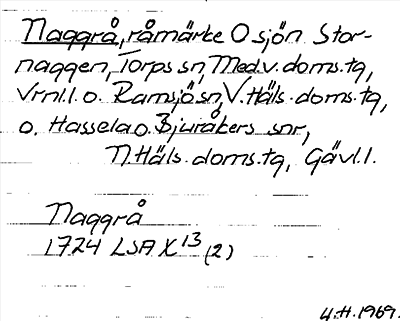 Naggrå, råmärke O sjön Stor-
naggen, Torps sn, Med.v. doms.tg,
Vrnl.l. o. Ramsjö sn, V. Häls. doms.tg,
o. Hassela o. Bjuråkers snr,
N. Häls. doms.tg, Gävl.l.
Naggrå
1724 LSA X 13 (2)
U.H. 1969.